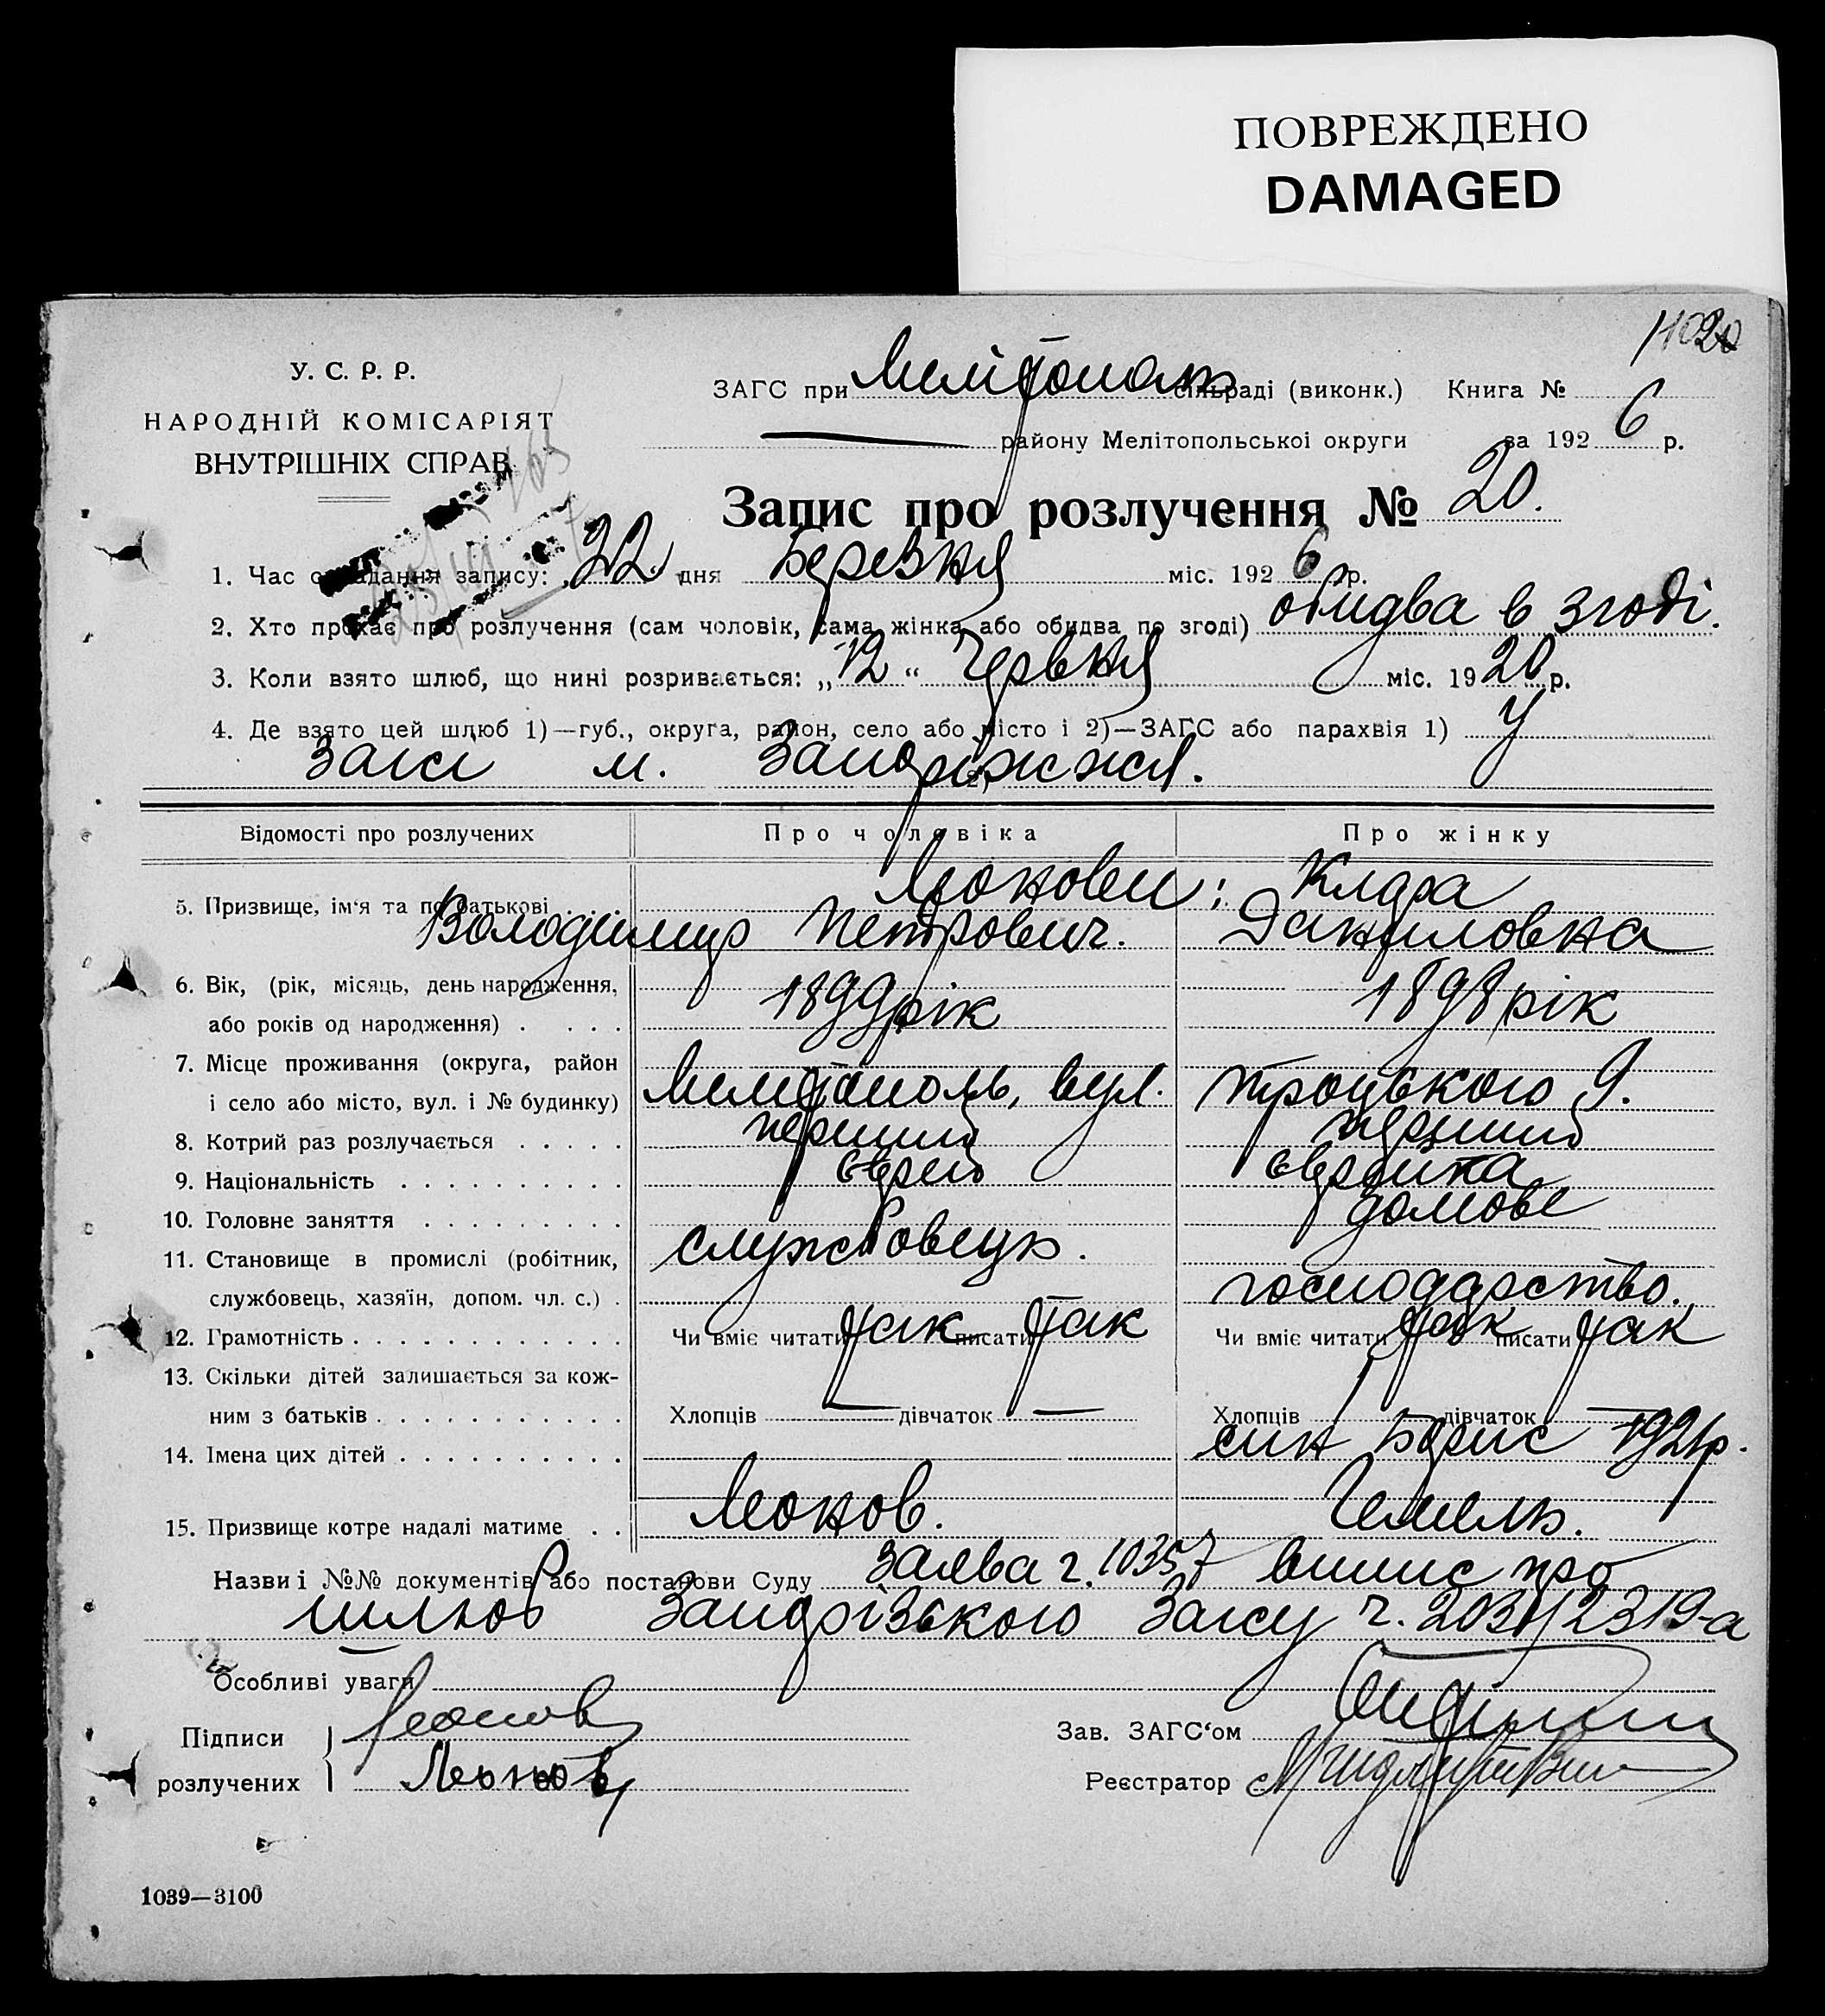 ПОВРЕЖДЕНО
DAMAGED
У. С. Р. Р.
НАРОДНІЙ КОМІСАРІЯТ
ВНУТРІШНІХ СПРАВ
ЗАГС при Мелітополь сільраді (виконк.) Книга №
— району Мелітопольськоі округи за 1926 р.
Запис про розлучення № 20.
1. Час складання запису: 22 дня Березня міс. 1926 р.
2. Хто прохає про розлучення (сам чоловік, сама жінка або обидва по згоді) обидва в згоді.
3. Коли взято шлюб, що нині розривається: „12“ Червня міс. 1920 р.
4. Де взято цей шлюб 1)—губ., округа, район, село або місто і 2)—ЗАГС або парахвія 1) У
Загсі м. Запоріжжя.
Відомості про розлучених Про чоловіка Про жінку
5. Призвище, ім‘я та по батькові Леонови; Клара
Володимир Петрович. Даниловна
6. Вік, (рік, місяць, день народження,
або років од народження) . . . . 1899 рік 1898 рік
7. Місце проживання (округа, район
і село або місто, вул. і № будинку) Мелітополь, вул. Троцького 9.
8. Котрий раз розлучається . . . . . перший перший
9. Національність . . . . . . . . . . єврей єврейка
10. Головне заняття . . . . . . . . . домове
11. Становище в промислі (робітник, службовець.
службовець, хазяїн, допом. чл. с.) . господарство.
12. Грамотність . . . . . . . . . . . . Чи вміє читати так писати так Чи вміє читати так писати так
13. Скільки дітей залишається за кож-
ним з батьків . . . . . . . . . . . Хлопців — дівчаток — Хлопців 1 дівчаток —
14. Імена цих дітей . . . . . . . . . . син Борис 1921р.
15. Призвище котре надалі матиме . . Леонов. Гемель.
Назви і №№ документів або постанови Суду заява ч. 10357 випис про
шлюб Запорізького Загсу ч. 2031/2319-а
Особливі уваги
Підписи Леонов Зав. ЗАГС‘ом
розлучених Реєстратор
1039—3100